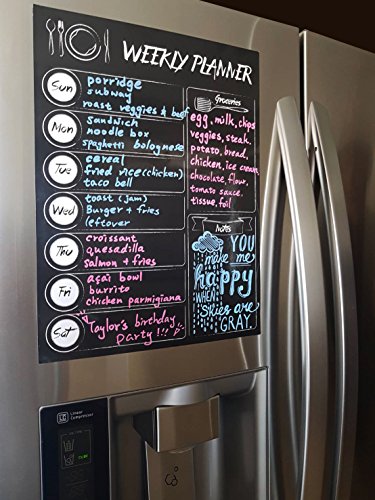 WEEKLY PLANNER
Sun
porridge
subway
roast veggies & beef
Mon
sandwich
noodle box
spaghetti bolognese
Tue
cereal
fried rice (chicken)
taco bell
Wed
toast (jam)
Burger + fries
leftover
Thu
croissant
quesadilla
salmon + fries
Fri
açaí bowl
burrito
chicken parmigiana
Sat
Taylor's birthday
party !!!
Groceries
egg, milk, chips
veggies, steak,
potato, bread,
chicken, ice cream,
chocolate, flour,
tomato sauce.
tissue, foil
Notes
YOU
make me
happy
WHEN
SKIES ARE
GRAY.
Linear
Compressor